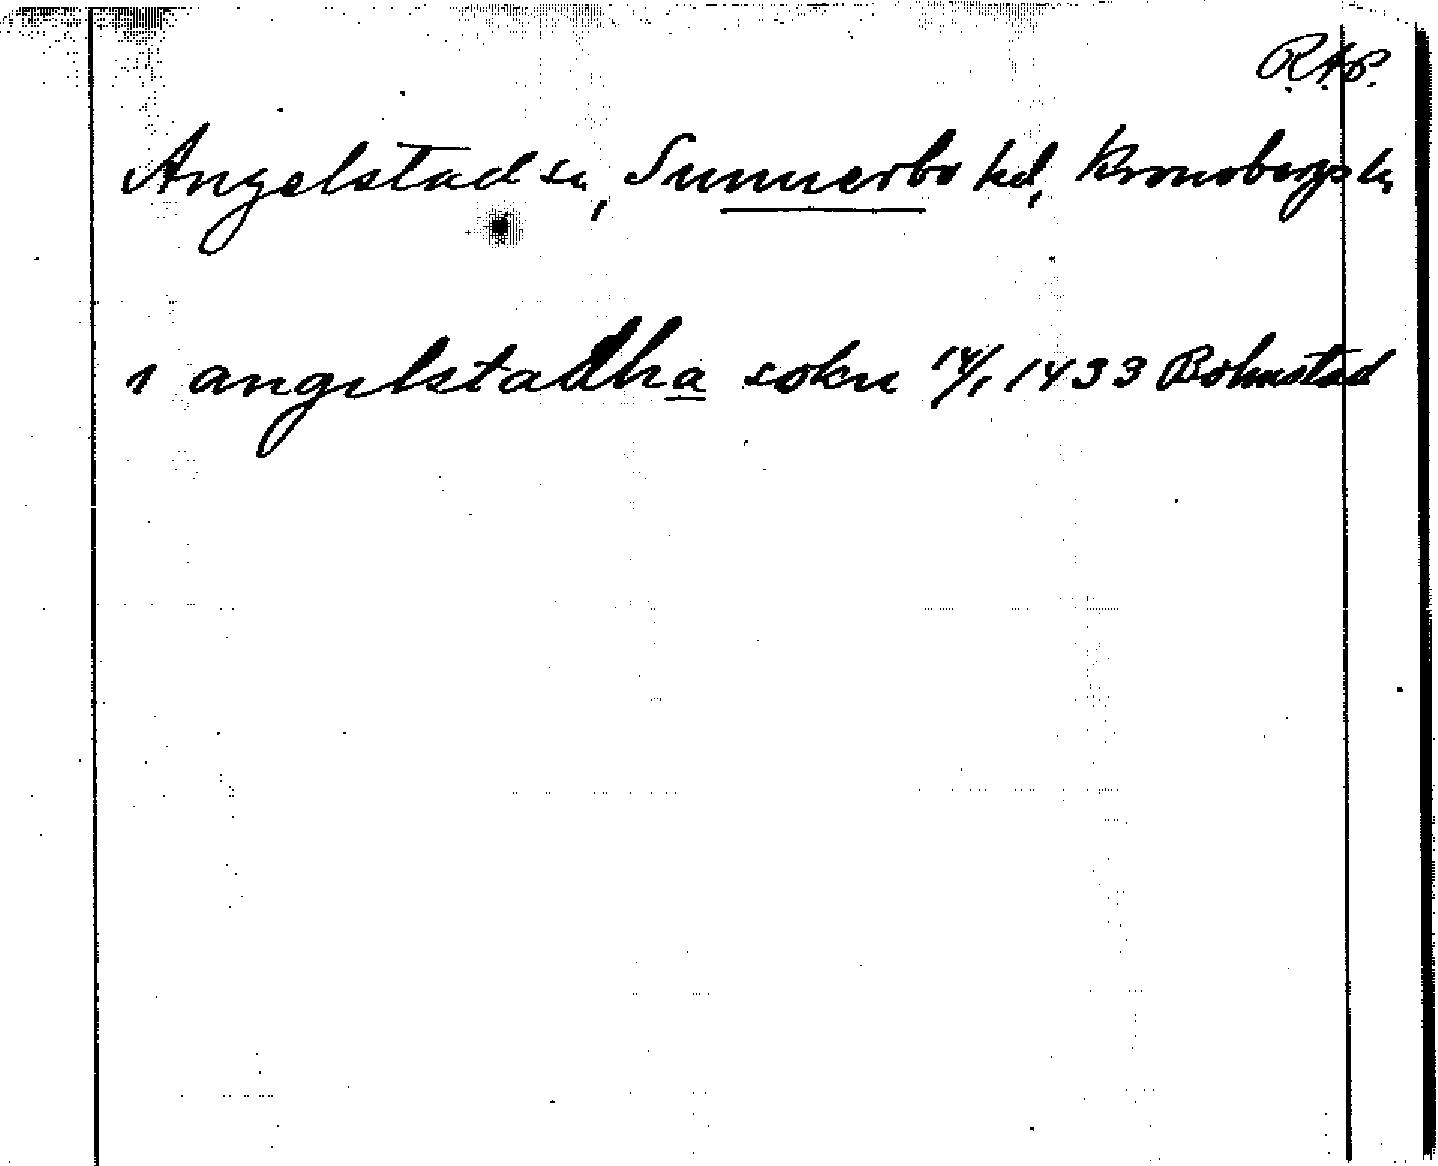 R.A.P.
Angelstad sn, Sunnerbo hd, Kronobergs ln
i angelstadha sokn 14/1 1433 Bohustad